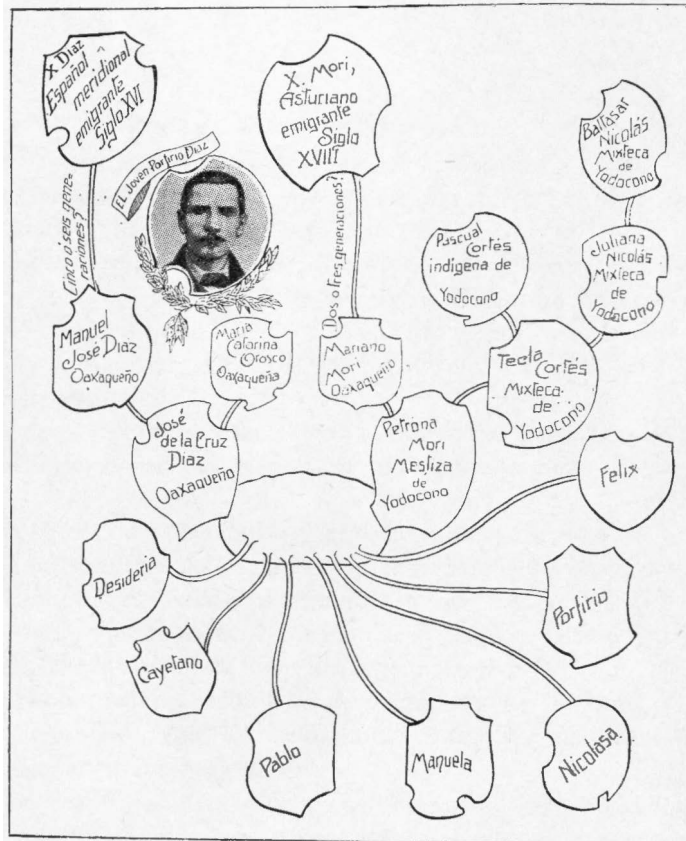 X Diaz
Español
meridional
emigrante
Siglo XVI
Cinco ó seis gene-
raciones?
EL Joven Porfirio Diaz
X. Mori,
Asturiano
emigrante
Siglo
XVIII
Dos o tres generaciones?
Baltasar
Nicolás
Mixteca
de
Yodocono
Pascual
Cortés
indígena de
Yodocono
Juliana
Nicolás
Mixteca
de
Yodocono
Manuel
José Diaz
Oaxaqueño
Maria
Catarina
Orosco
Oaxaqueña
Mariano
Mori
Oaxaqueño
Tecla Cortés
Mixteca
de
Yodocono
José
de la Cruz
Diaz
Oaxaqueño
Petrona
Mori
Mestiza
de
Yodocono
Felix
Desideria
Porfirio
Cayetano
Pablo
Manuela
Nicolasa